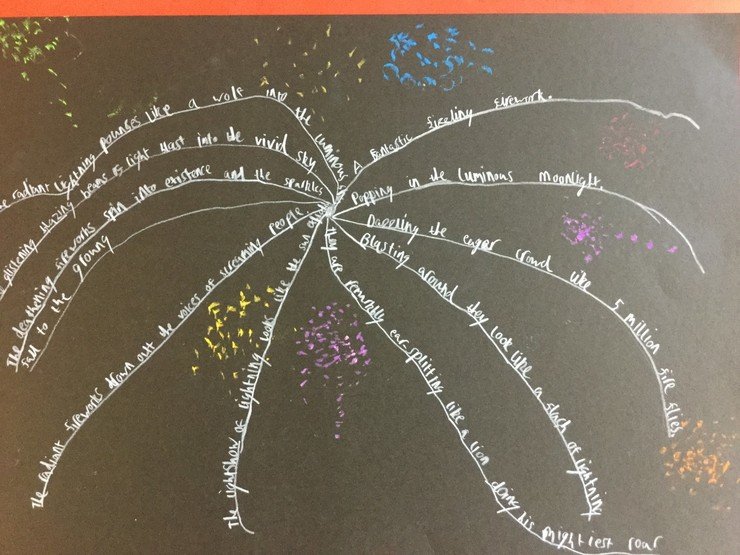 he radiant lightning pounces like a wolf into the luminous
glistening blazing beams of light blast into the vivid sky
The deafening fireworks spin into existence and the sparkles
fall to the ground
The radiant fireworks drown out the voices of screaming people
The lightshow of lightning looks like the sun
they are roaringly ear splitting like a lion doing his mightiest roar
Blasting around they look like a stack of lightning
Dazzling the eager crowd like 5 million fire flies
Popping in the luminous moonlight.
A fantastic fizzling firework.